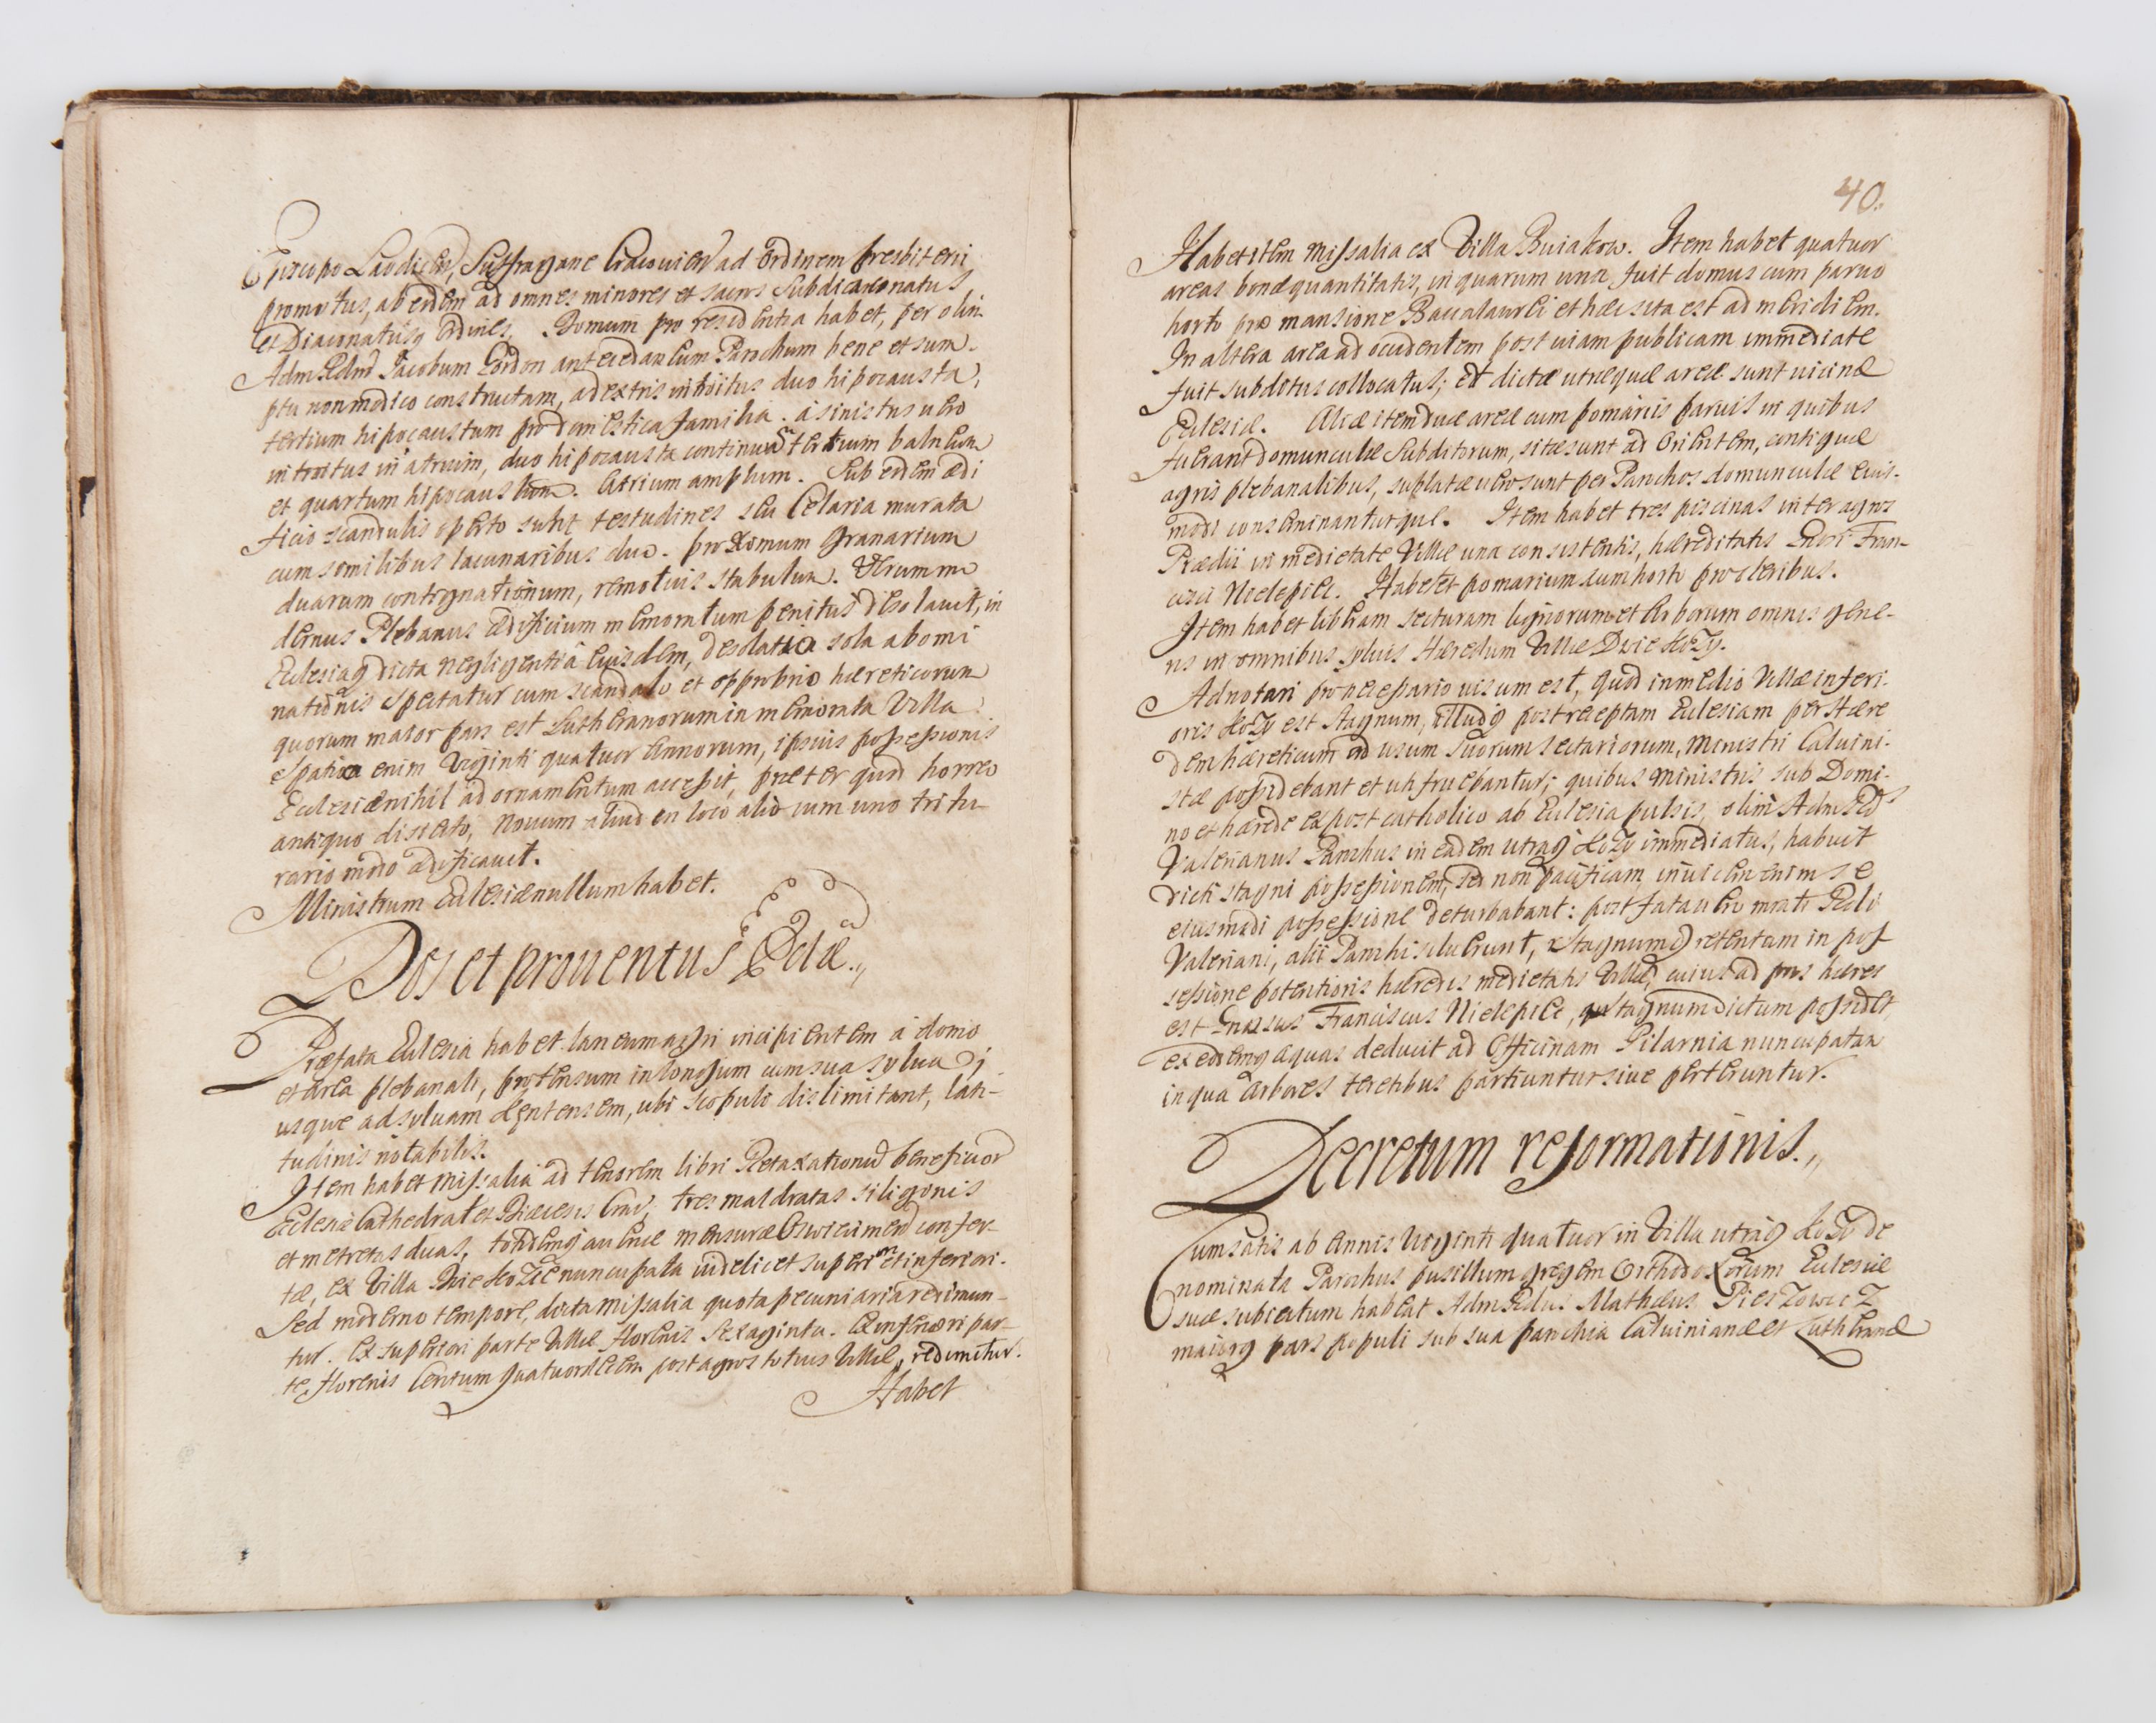 Episcopo Laodicen, Suffragane Cracouien ad ordinem presbiterii
promotus, ab eodem ad omnes minores et sacros Subdiaconatus
et Diaconatusq ordines. Domum pro residentia habet, per olim
Adm Rdnd Jacobum Gordon antecedaneum Parochum bene et sum-
ptu non modico constructam, a dextris introitus duo hipocausta,
tertium hipocaustum pro domestica familia. a sinistris uero
introitus in atrium, duo hipocausta continua tertium balneum
et quartum hipocaustum. Atrium amplum. Sub eodem aedi
ficio scandulis operto sunt testudines seu Celaria murata
cum similibus lacunaribus duo. proximum Granarium
duarum contignationum, remotius stabulum. Verum mo
dernus Plebanus aedificium memoratum penitus desolauit, in
Eclesiaq dicta negligentia eiusdem, desolatio sola abomi
nationis spectatur cum scandalo et opprobrio haereticorum
quorum maior pars est Lutheranorum in memorata Villa
spatio enim Viginti quatuor Annorum, ipsius possessionis
Eclesiae nihil ad ornamentum accessit, praeter quod horreo
antiquo disiecto, nouum aliud en loco alio cum uno tritu
rario modo aedificauit.
Ministrum Eclesiae nullum habet.
Dos et prouentus Eclae.,,
Praefata Eclesia habet laneum agri incipientem a domo
et area plebanali, protensum in longum cum sua sylua
usque ad syluam Lentensem, ubi scopuli dislimitant, lati-
tudinis notabilis.
Item habet missalia ad tenorem libri Retaxationum beneficior
Eclesiae Cathedral et Diaecesis Crac, tres maldratas siliginis
et metretas duas, totidemq auenae mensurae Oswiecimen conser-
tae, ex Villa Dwie Kozie nuncupata videlicet superiori et inferiori.
Sed moderno tempore, dicta missalia quota pecuniaria redimun-
tur. Ex superiori parte Villae florenis Sexaginta. Ex inferiori par-
te, florenis Centum quatuordecim post agros totius Villae, redimitur.
Habet
40.
Habet item missalia ex Villa Buiakow. Item habet quatuor
areas bonae quantitatis, in quarum una fuit domus cum paruo
horto pro mansione Baccalaurei et haec sita est ad meridiem.
In altera area ad occidentem post uiam publicam immediate
fuit subditus collocatus; et dictae utraequae areae sunt uicinae
Eclesiae. Aliae item duae areae cum pomariis paruis in quibus
fuerant domunculae Subditorum, sitae sunt ad Orientem, contiguae
agris plebanalibus, sublatae uero sunt per Parochos domunculae eius-
modi conseminanturque. Item habet tres piscinas inter agros
Praedii in medietate Villae una consistentis, haereditatis Gnosi Fran-
cisci Nielepiec. Habet et pomarium cum horto pro oleribus.
Item habet liberam secturam lignorum et Arborum omnis gene-
ris in omnibus syluis Haeredum Villae Dwie Kozy.
Adnotari pro necessario uisum est, quod in medio Villae inferi-
oris Kozy est stagnum, illudq post receptam Eclesiam per Haere
dem haereticum ad usum suorum sectariorum, Ministri Caluini-
stae possidebant et ufruebantur; quibus ministris sub Domi-
no et haerede ex post catholico ab Eclesia pulsis, olim Adm Rds
Valerianus Parochus in eadem utraq Kozy immediatus, habuit
dicti stagni possessionem, sed non pacificam, inuicem enim se
eiusmodi possessione deturbabant: post fata uero mrati Rdi
Valeriani, alii Parochi siluerunt, stagnumq retentum in pos
sessione potentioris haeredis medietatis Villae, cuius ad prns haeres
est Gnosus Franciscus Nielepiec, qui stagnum dictum possidet,
ex eodemq aquas deducit ad Officinam Pilarnia nuncupatam
in qua arbores teretibus partiuntur siue perteruntur.
Decretum reformationis.,,
Cum satis ab Annis Viginti quatuor in Villa utraq Kozy de
nominata Parochus pusillum gregem Orthodoxorum Eclesiae
suae subiectum habeat Adm Rdus Mathaeus Pieszowicz
maiorq pars populi sub sua parochia Caluinianae et Lutheranae